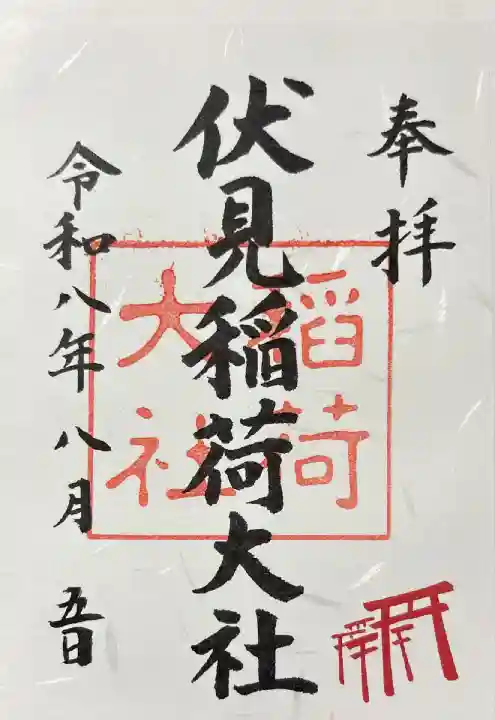 奉拝
伏見稲荷大社
稲荷
大社
令和八年八月五日